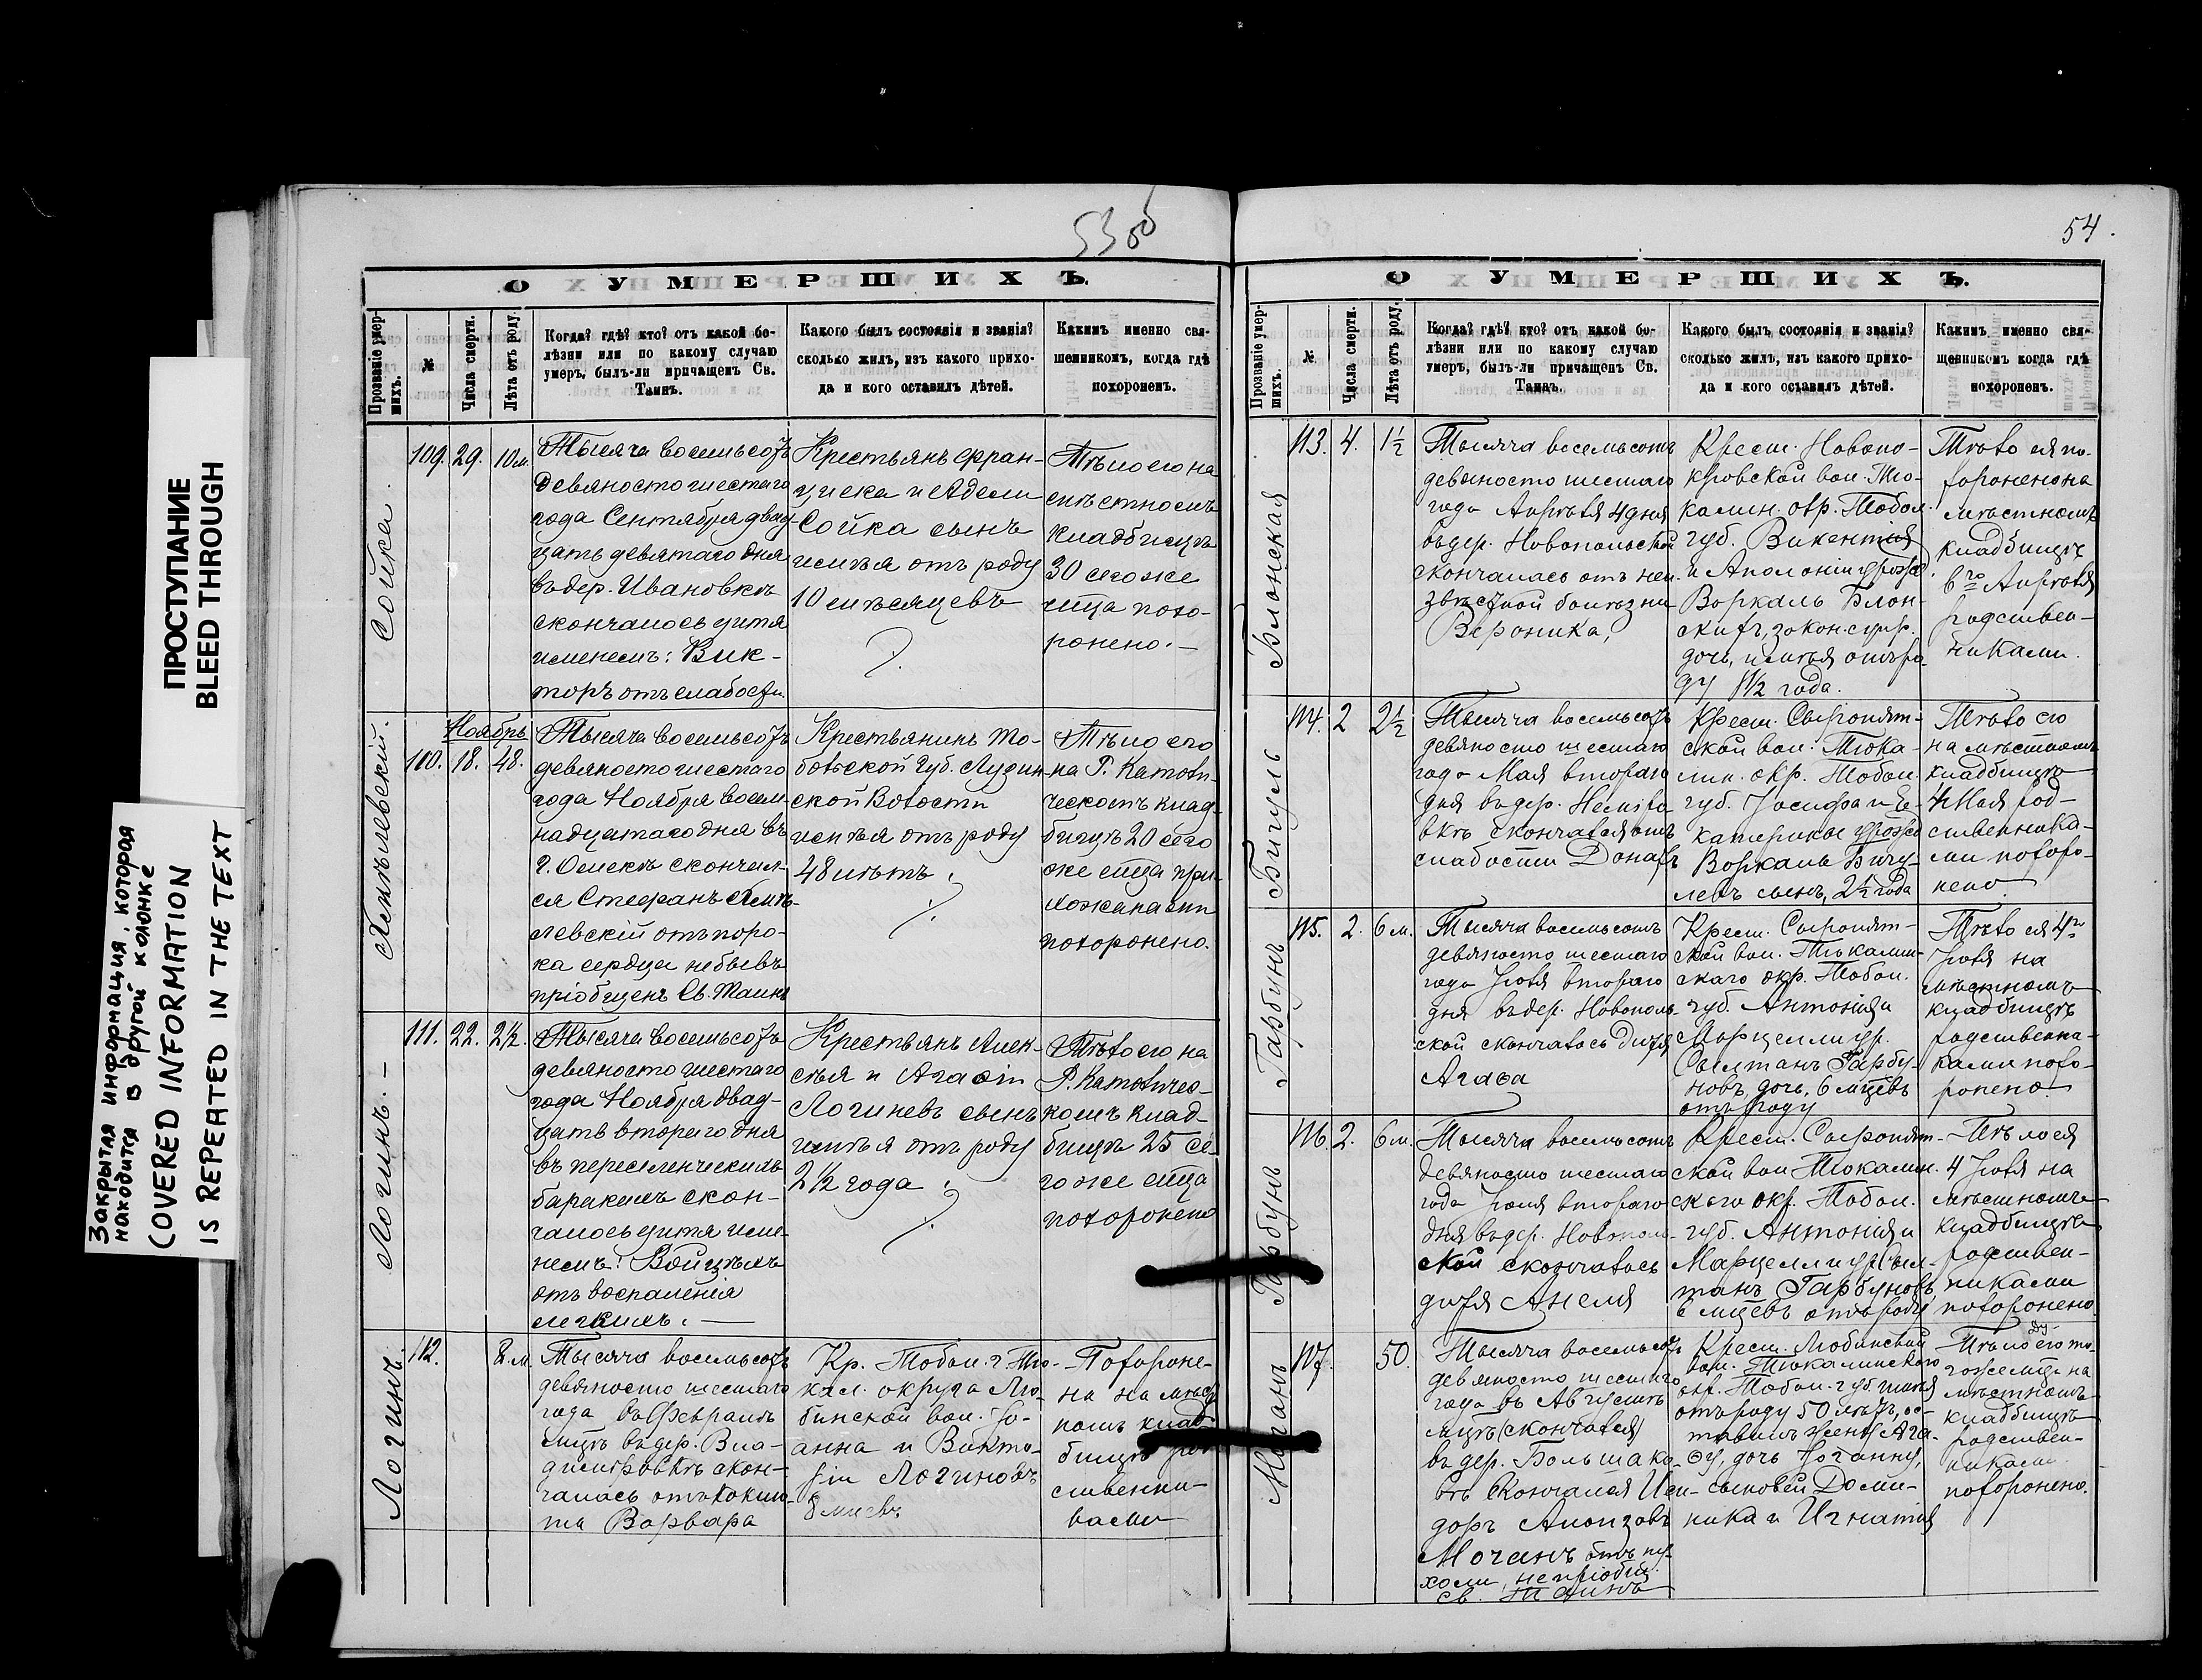 ПРОСТУПАНИЕ
BLEED THROUGH
Закрытая информация, которая
находится в другой колонке
(OVERED INFORMATION
IS REPEATED IN THE TEXT
53об
О УМЕРШИХЪ.
Прозваніе умер-
шихъ.
№
Числа смерти.
Лѣта отъ роду.
Когда? гдѣ? кто? отъ какой бо-
лѣзни или по какому случаю
умеръ, былъ-ли причащенъ Св.
Таинъ.
Какого былъ состоянія и званія?
сколько жилъ, изъ какого прихо-
да и кого оставилъ дѣтей.
Какимъ именно свя-
шенникомъ, когда гдѣ
похороненъ.
Сойка.
109. 29. 10 м.
Тысяча восемьсотъ
девяносто шестаго
года Сентября двад-
цать девятаго дня
въ дер. Ивановкѣ
скончалось дитя
именемъ: Вик-
торъ отъ слабости.
Крестьянъ Фран-
циска и Адели
Сойка сынъ
имѣя отъ роду
10 мѣсяцевъ
Тѣло его на
мѣстномъ
кладбищѣ
30 сего же
мца похо-
ронено.
Ноябрь
110. 18. 48.
Тысяча восемьсотъ
девяносто шестаго
года Ноября восем-
надцатаго дня въ
г. Омскѣ скончал-
ся Стефанъ
левскій отъ поро-
ка сердца небывъ
пріобщенъ Св. Таинъ
Крестьянинъ То-
больской Губ. Лузин-
ской Волости
имѣя отъ роду
48 лѣтъ.
Тѣло его
на Р. Католи-
ческомъ клад-
бищѣ 20 сего
же мца при-
хожанами
похоронено.
Логинъ.
111. 22. 2½.
Тысяча восемьсотъ
девяносто шестаго
года Ноября двад-
цать втораго дня
въ переселенческомъ
баракѣ скон-
чалось дитя име-
немъ: Войцѣхъ
отъ воспаленія
легкихъ.
Крестьянъ Алек-
сѣя и Агафіи
Логиневъ сынъ
имѣя отъ роду
2½ года.
Тѣло его на
Р. Католичес-
комъ клад-
бищѣ 25 се-
го же мца
похоронено
Логинъ.
112. 8 м.
Тысяча восемьсотъ
девяносто шестаго
года въ Февралѣ
мцѣ въ дер. Вла-
димировкѣ скон-
чалась отъ коклю-
ша Варвара
Кр. Тобол. г. Тю-
кал. округа Лю-
бинской вол. Іо-
анна и Викто-
ріи Логиновъ
8 мцевъ
Похороне-
на на мѣст
номъ клад
бищѣ род
ственни-
ками
54.
О УМЕРШИХЪ.
Прозваніе умер-
шихъ.
№
Числа смерти.
Лѣта отъ роду.
Когда? гдѣ? кто? отъ какой бо-
лѣзни или по какому случаю
умеръ, былъ-ли причащенъ Св.
Таинъ.
Какого былъ состоянія и званія?
сколько жилъ, изъ какого прихо-
да и кого оставилъ дѣтей.
Какимъ именно свя-
щенникомъ когда гдѣ
похороненъ.
Блонская
113. 4. 1½
Тысяча восемьсотъ
девяносто шестаго
года Апрѣля 4 дня
въ дер. Новопольской
скончалась отъ неи-
звѣстной болѣзни
Вероника,
Крест. Новопо-
кровской вол. Тю-
калин. окр. Тобол.
губ. Викентія
и Аполоніи урожд.
Воркаль Блон-
скихъ, закон. супр.
дочь, имѣя отъ ро
ду 1½ года.
Тѣло ея по-
хоронено на
мѣстномъ
кладбищѣ
6го Апрѣля
родствен-
никами.
Бигуль
114. 2 2½
Тысяча восемьсотъ
девяносто шестаго
года Мая втораго
дня въ дер.
скончался отъ
слабости Донатъ
Крест. Сыропят-
ской вол. Тюка-
лин. окр. Тобол.
губ. Іосифа и Е-
катерины урожд
Воркаль Бигу-
левъ сынъ, 2½ года
Тѣло его
на мѣстномъ
кладбищѣ
4 Мая род-
ственника-
ми похоро-
нено.
Гарбунъ
115. 2. 6 м.
Тысяча восемьсотъ
девяносто шестаго
года Іюля втораго
дня въ дер. Новополь-
ской скончалось дитя
Агафа
Крест. Сыропят-
ской вол. Тюкалин-
скаго окр. Тобол.
губ. Антонія и
Марцелли ур.
Султанъ Гарбу-
новъ дочь, 6 мцевъ
отъ роду
Тѣло ея 4го
Іюля на
мѣстномъ
кладбищѣ
родственни-
ками похо-
ронено.
Гарбунъ
116. 2. 6 м.
Тысяча восемьсотъ
девяносто шестаго
года Іюля втораго
дня въ дер. Новополь-
ской скончалось
дитя Анеля
Крест. Сыропят-
ской вол Тюкалин.
скаго окр. Тобол.
губ. Антонія и
Марцелли ур
танъ Гарбуновъ
6 мцевъ отъ роду
Тѣло ея
4 Іюля на
мѣстномъ
кладбищѣ
родствен-
никами
похоронено.
Мочанъ
117. 50.
Тысяча восемьсотъ
девяносто шестаго
года въ Августѣ
мцѣ (скончался)
въ дер. Большако-
вѣ скончался Иси-
доръ Алоизовъ
Мочанъ отъ пу-
холи, непріобщ.
Св. Таинъ
Крест. Любинской
вол. Тюкалинскаго
окр. Тобол. губ. имѣя
отъ роду 50 лѣтъ, ос-
тавилъ жену Ага-
фу, дочь Іоганну,
сыновей Доми-
ника и Игнатія
Тѣло его то-
гоже мца на
мѣстномъ
кладбищѣ
родствен-
никами
похоронено.